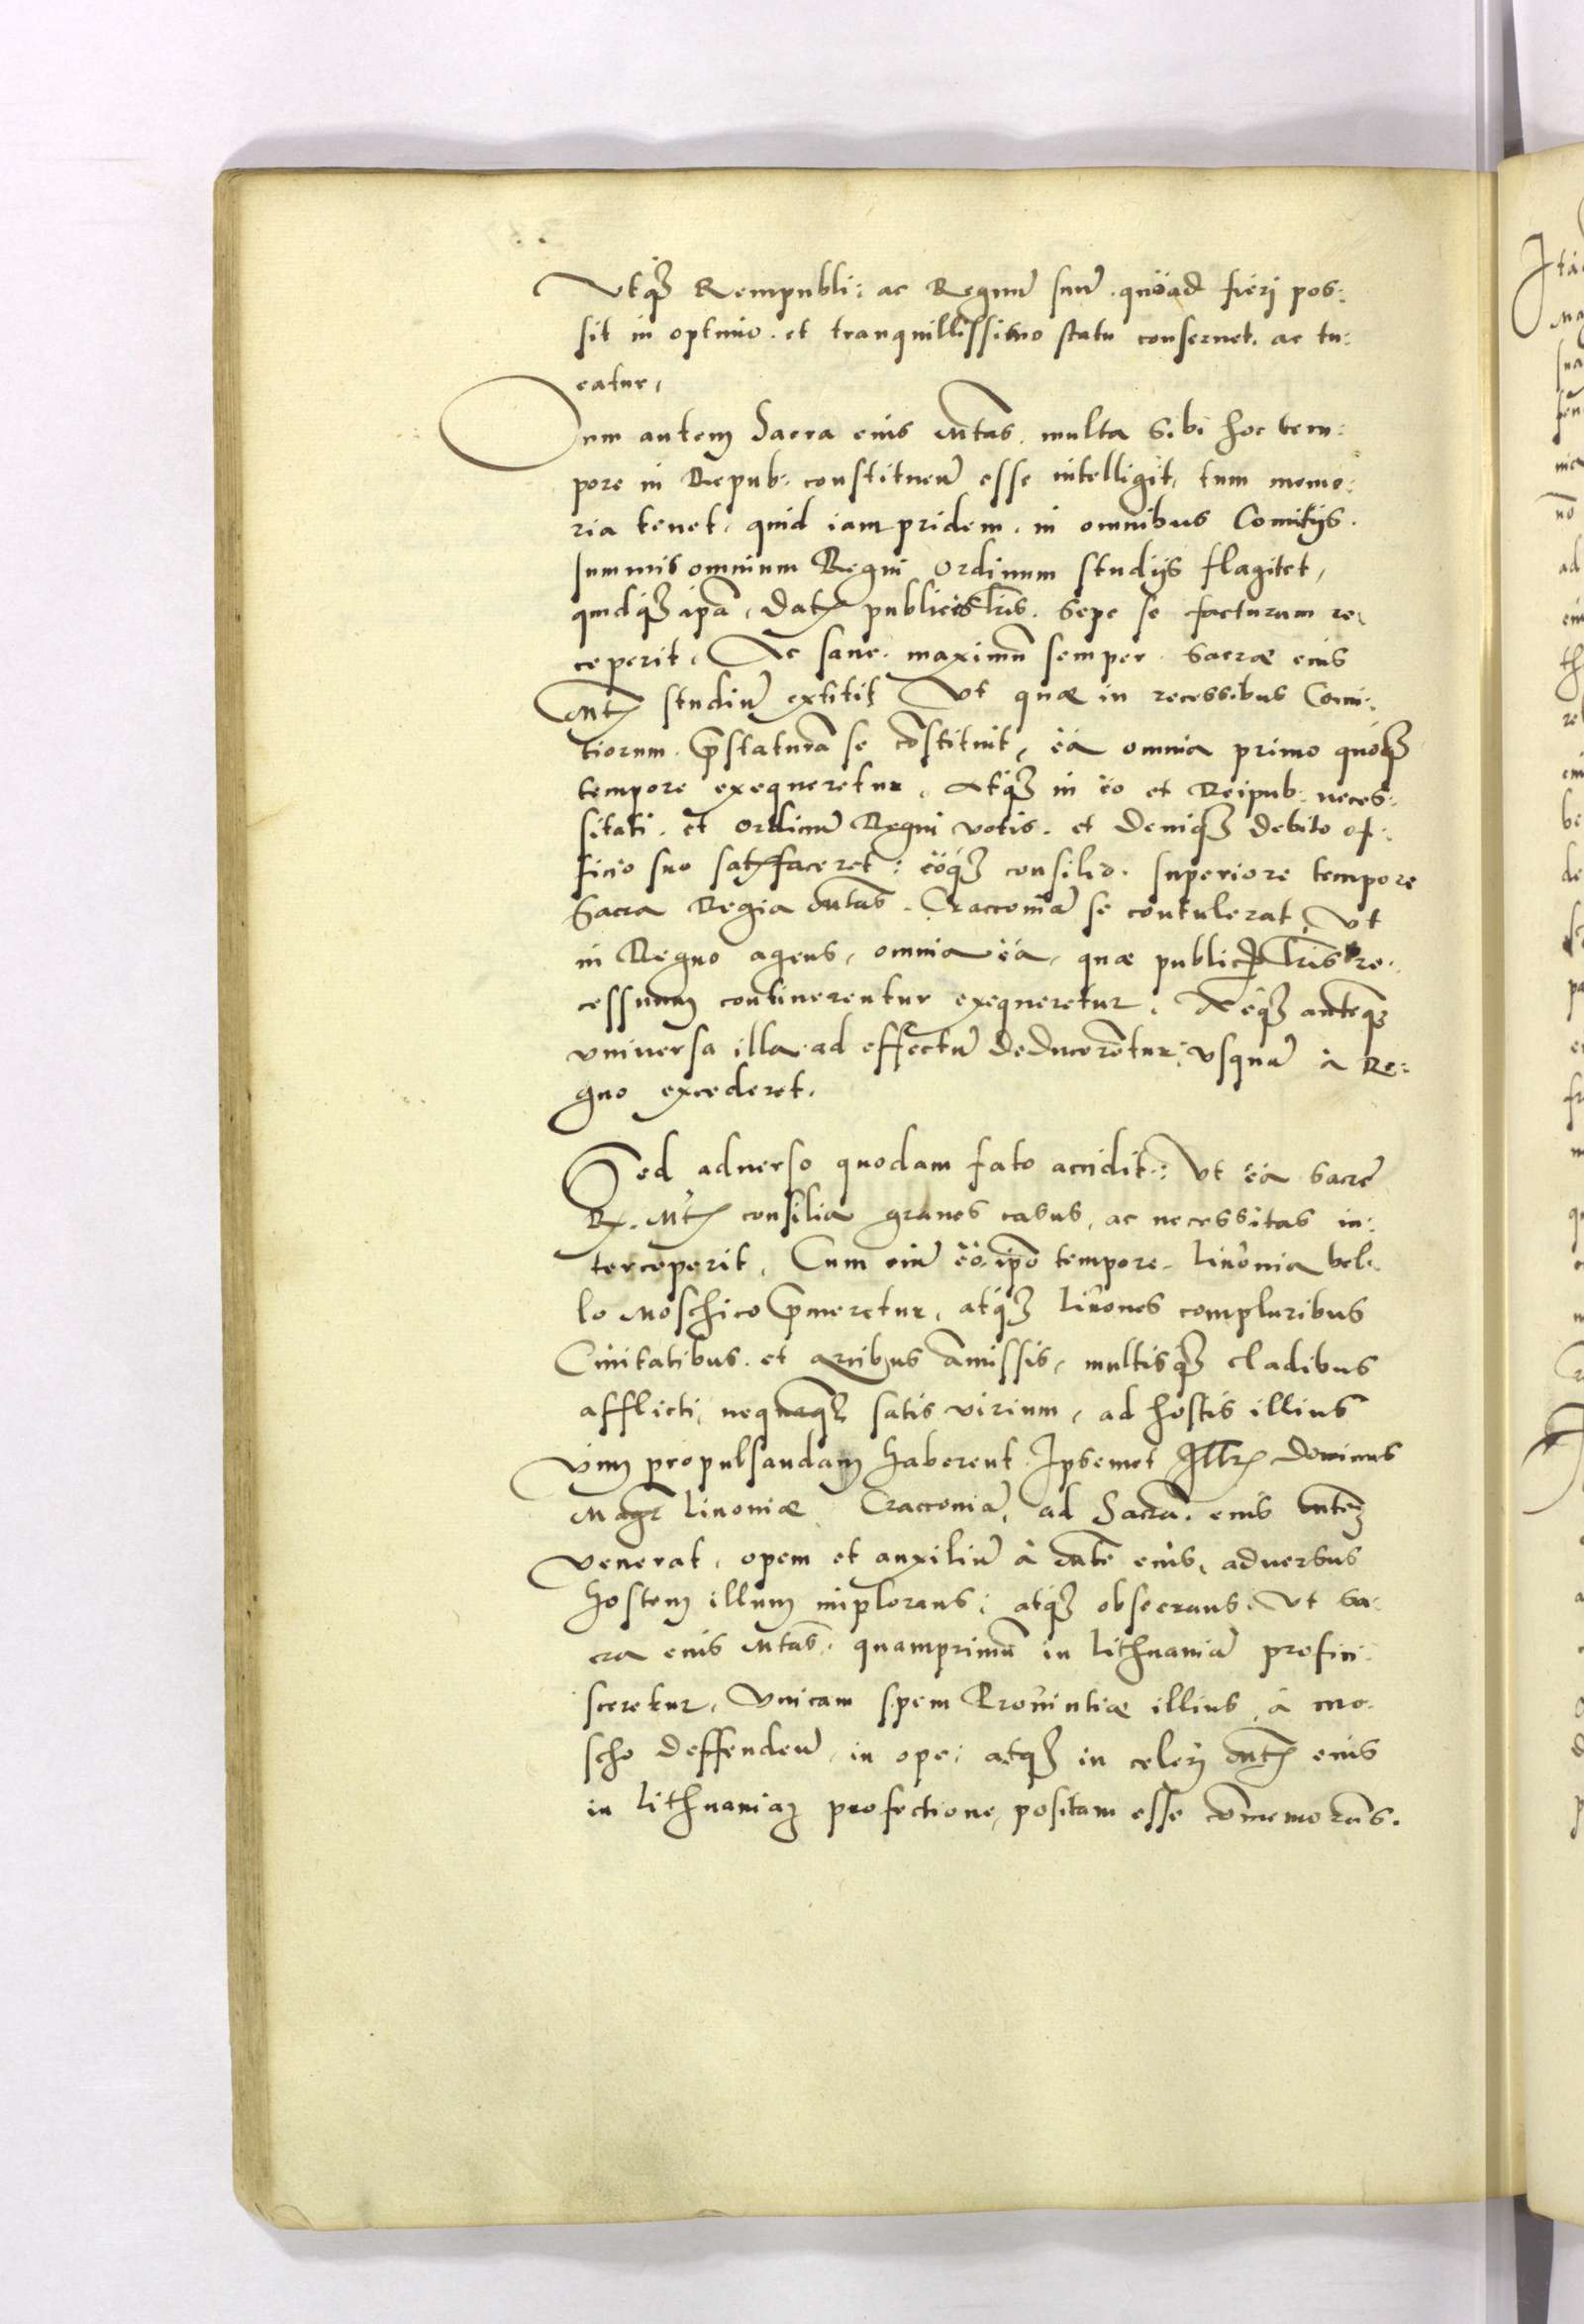 Vtq₃ Rempubli: ac Regnū suū. quoad fierj pos:
sit in optimo. et tranquillissimo statu conseruet. ac tu:
eatur,
Cum autem Sacra eius Mtas. multa Sibi hoc tem:
pore in Repub: constituenḋ esse intelligit, tum memo:
ria tenet, quid iam pridem, in omnibus Comitijs.
summis omnium Regni Ordinum studijs flagitet,
quidq₃ ipā, datꝭ publicis lr̄is. Sepe se facturum re:
ceperit, Ac sane. maximū semper Sacræ eius
Mtꝭ studiū extitit Vt quæ in recessibus Comi:
tiorum. p̄staturā se cōstituit, ea omnia primo quoq₃
tempore exequeretur, Atq₃ in eo et Reipub: neces:
sitati. et ordinū Regni votis. et deniq₃ debito of:
ficio suo satꝭfaceret: eoq₃ consilio. superiore tempore
Sacra Regia Mtas. Cracouiā se contulerat, Vt
in Regno agens, omnia ea, quæ publicꝭ lr̄is re:
cessuum continerentur exequeretur. Neq₃ anteq₃
vniuersa illa ad effectū deducerētur, vsquā à Re:
gno excederet.
Sed aduerso quodam fato accidit: Vt ea Sacrę
Rꝭ. Mtꝭ consilia graues casus, ac necessitas in:
terceperit, Cum eiū eo ipo tempore Liuonia bel:
lo Moschico p̄meretur, atq₃ Liuones compluribus
Ciuitatibus. et arcibus amissis, multisq₃ cladibus
afflicti, nequeq₃ satis virium, ad hostis illius
vim propulsandam haberent Ipsemet Illrꝭ Dominus
Magr̄ Liuoniæ Cracouiā, ad Sacrā. eius Mtē₃
venerat, opem et auxiliū à Mte eius, aduersus
hostem illum implorans; atq₃ obsecrans. Vt Sa:
cra eius Mtas. quamprimū in Lithuaniā profici:
sceretur, Vnicam spem Prouintiæ illius à Mo:
scho deffendeḋ, in ope, atq₃ in celerj Mtꝭ eius
in Lithuaniam profectione, positam esse cōmemorās.